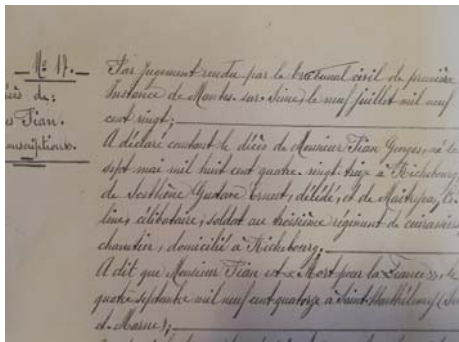 Nº 17.
décès de:
Tian.
transcriptions.
Par Jugement rendu par le tribunal civil de première
Instance de Mantes-sur-Seine, le neuf juillet mil neuf
cent vingt;
A déclaré constant le décès de Monsieur Tian Georges, né le
sept mai mil huit cent quatre-vingt-treize à Richebourg,
de Sosthène Gustave Ernest, décédé, et de
line, célibataire, soldat au troisième régiment de cuirassiers,
domicilié à Richebourg.
A dit que Monsieur Tian est "Mort pour la France", le
quatre septembre mil neuf cent quatorze à Saint-Barthélemy (Seine
et-Marne);